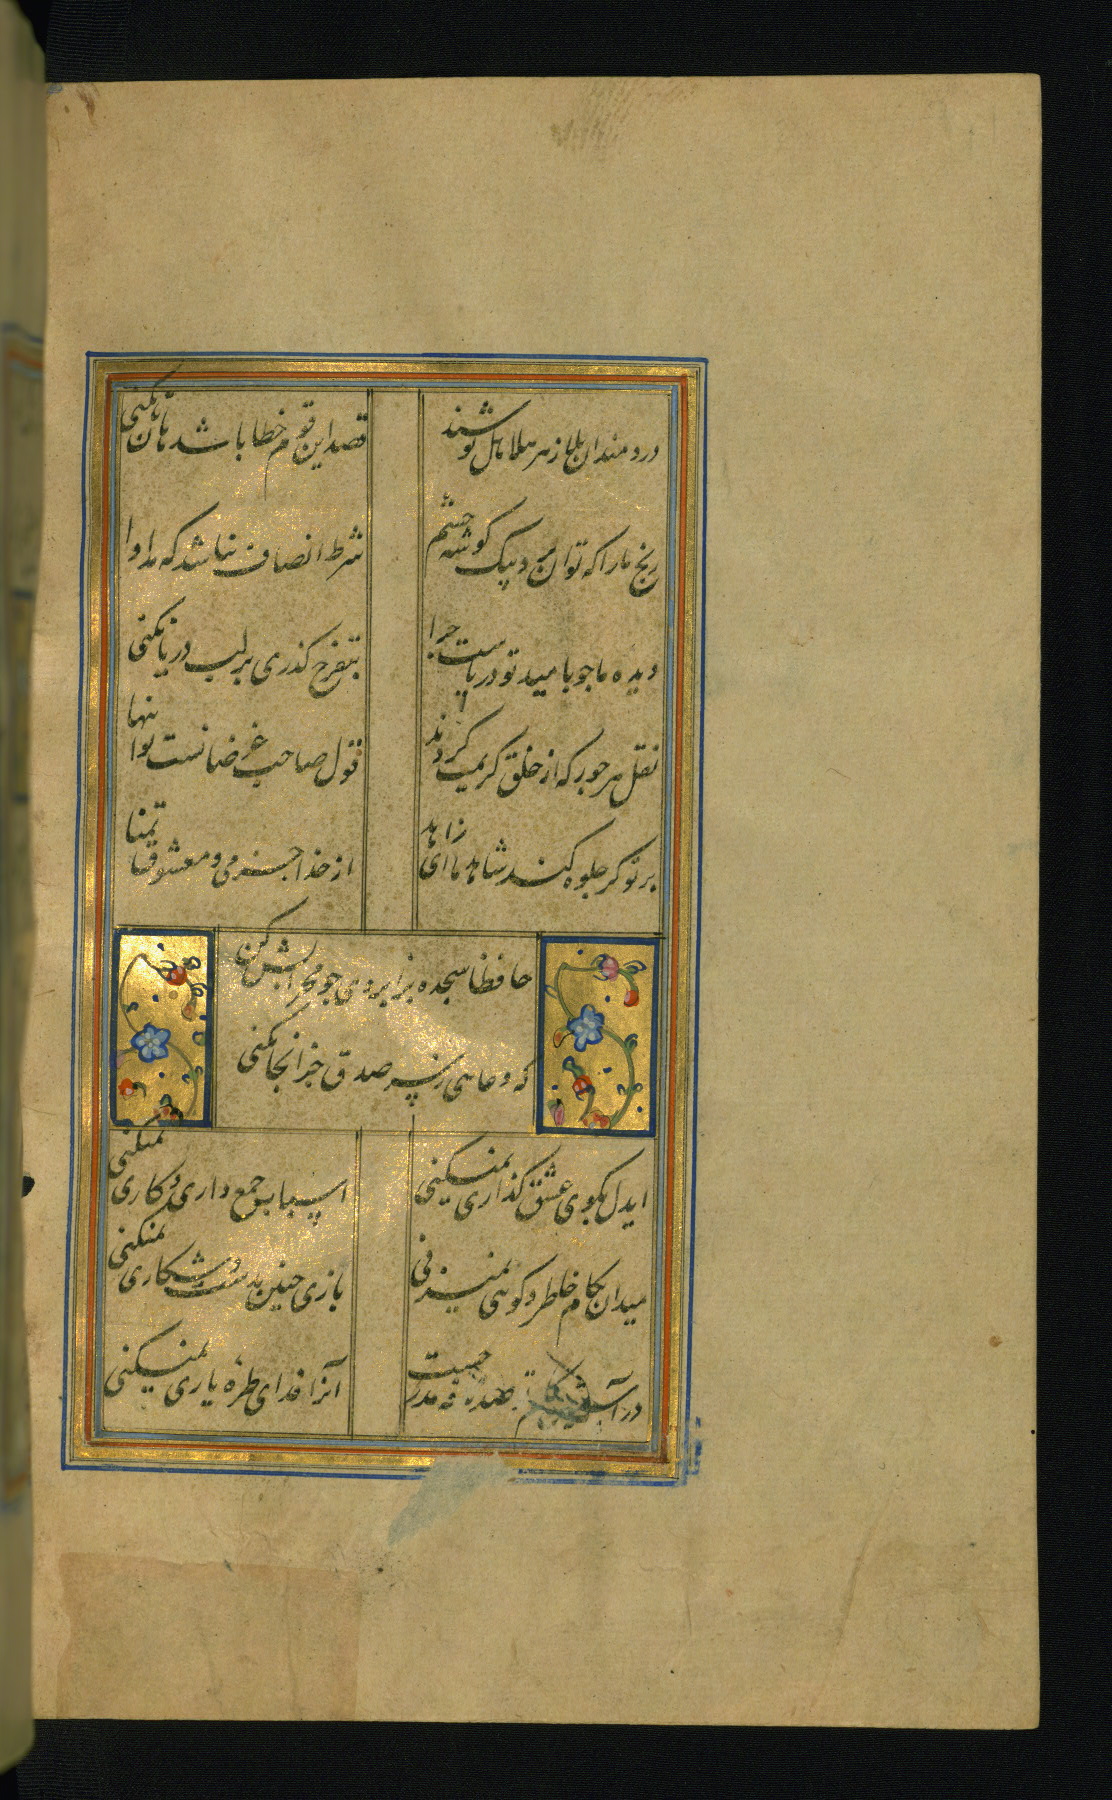 دردمندان بلا زهر هلاهل نوشند
قصد این قوم خطا باشد هان تا نکنی
رنج ما را که توان برد بیک گوشه چشم
شرط انصاف نباشد که مداوا
دیده ما چو بامید تو دریاست چرا
بتفرج گذری بر لب دریا نکنی
نقل هر جور که از خلق کریمت کردند
قول صاحب غرضانست توآنها
بر تو گر جلوه کند شاهد ما ای زاهد
از خدا جز می و معشوق تمنا
حافظا سجده بر ابروی چو محرابش کن
که دعایی ز سر صدق جز آنجا نکنی
ایدل بکوی عشق گذاری نمیکنی
اسباب جمع داری و کاری نمیکنی
میدان بکام خاطر و گویی نمیزنی
بازی چنین بدست و شکاری نمیکنی
در آستین صد نافه مدرجست
آنرا فدای طره یاری نمیکنی